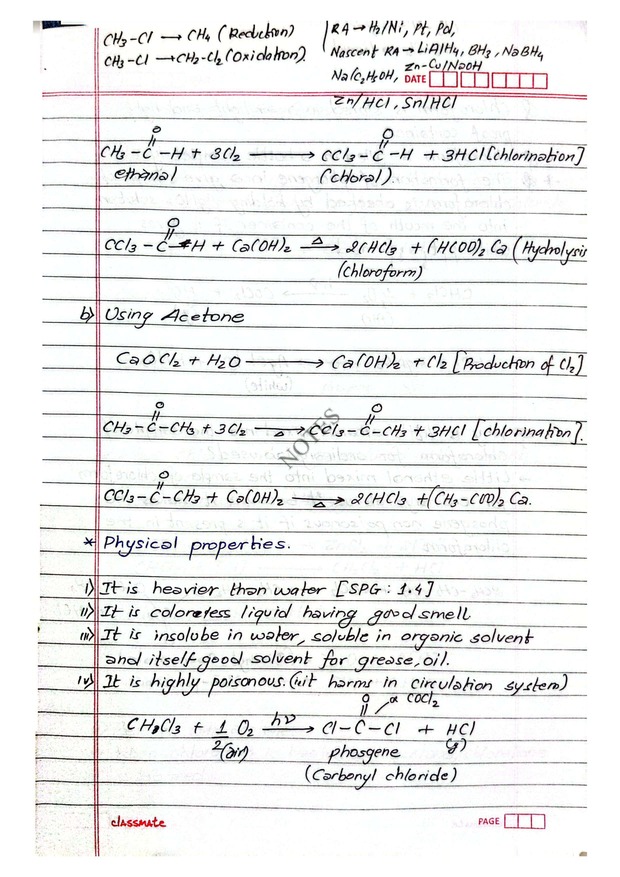 CH3-Cl → CH4 (Reduction)
CH3-Cl → CH2-Cl2 (Oxidation).
RA → H2/Ni, Pt, Pd,
Nascent RA → LiAlH4, BH3, NaBH4
Na/C2H5OH, Zn-Cu/NaOH
DATE
Zn/HCl, Sn/HCl
O
||
CH3-C-H + 3Cl2 → CCl3-C-H + 3HCl [chlorination]
ethanal (chloral)
O
||
CCl3-C-H + Ca(OH)2 △→ 2CHCl3 + (HCOO)2 Ca (Hydrolysis
(chloroform)
b) Using Acetone
CaOCl2 + H2O → Ca(OH)2 + Cl2 [Production of Cl2]
O
||
CH3-C-CH3 + 3Cl2 △→ CCl3-C-CH3 + 3HCl [chlorination].
NOTES
O
||
CCl3-C-CH3 + Ca(OH)2 △→ 2CHCl3 + (CH3-COO)2 Ca.
* Physical properties.
i) It is heavier than water [SPG: 1.4]
ii) It is colorless liquid having good smell
iii) It is insoluble in water, soluble in organic solvent
and itself good solvent for grease, oil.
iv) It is highly poisonous. (it harms in circulation system)
O or COCl2
||
CHCl3 + 1/2 O2 hν→ Cl-C-Cl + HCl
(air) phosgene (g)
(Carbonyl chloride)
classmate
PAGE